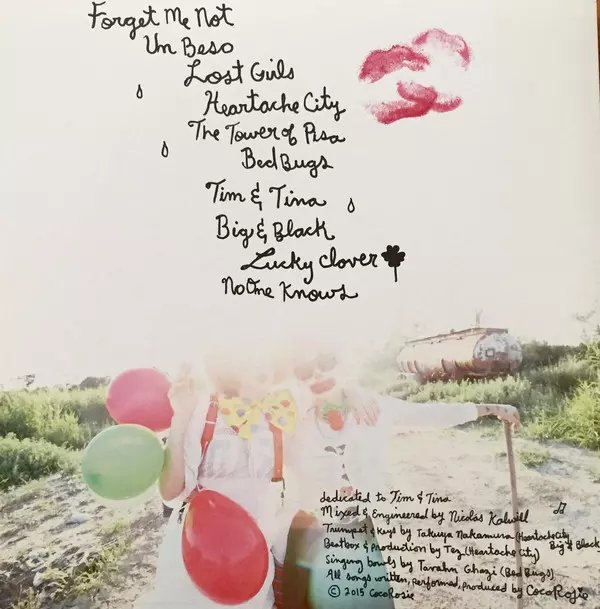 Forget Me Not
Un Beso
Lost Girls
Heartache City
The Tower of Pisa
Bed Bugs
Tim & Tina
Big & Black
Lucky Clover
No One Knows
dedicated to Tim & Tina
Mixed & Engineered by Nicolas Kalwill
Trumpet & Keys by Takuya Nakamura (Heartache City
Big & Black
Beatbox & Production by Tez (Heartache City)
Singing bowls by Tavahn Ghazi (Bed Bugs)
All songs written, performed, produced by CocoRosie
© 2015 CocoRosie